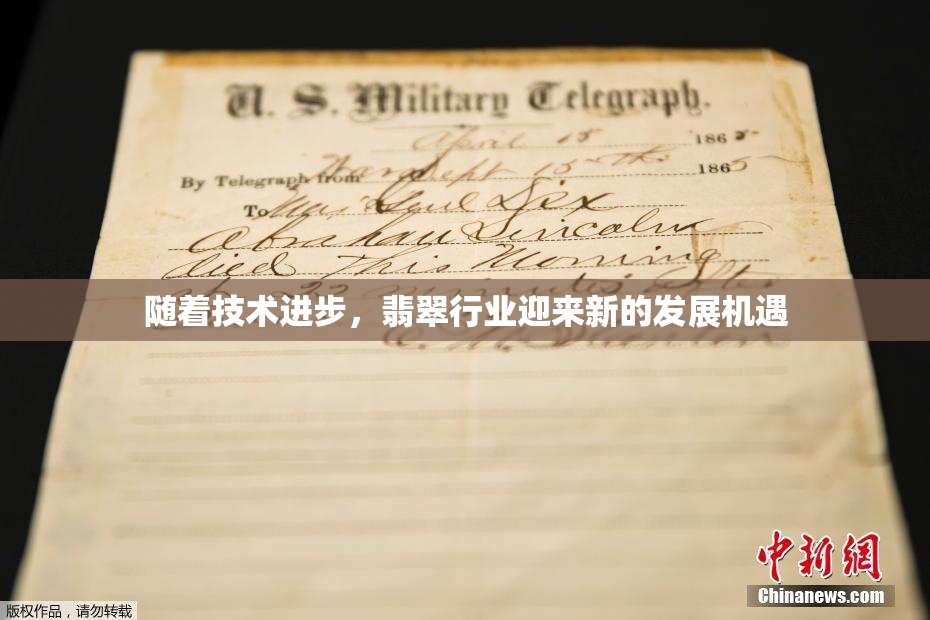 U. S. Military Telegraph.
April 15 1865
By Telegraph from War Dept 15th 1865
To Maj Genl Dix
Abraham Lincoln
died This Morning
at 22 minutes after
随着技术进步，翡翠行业迎来新的发展机遇
E. M. Stanton
中新網
Chinanews.com
版权作品，请勿转载